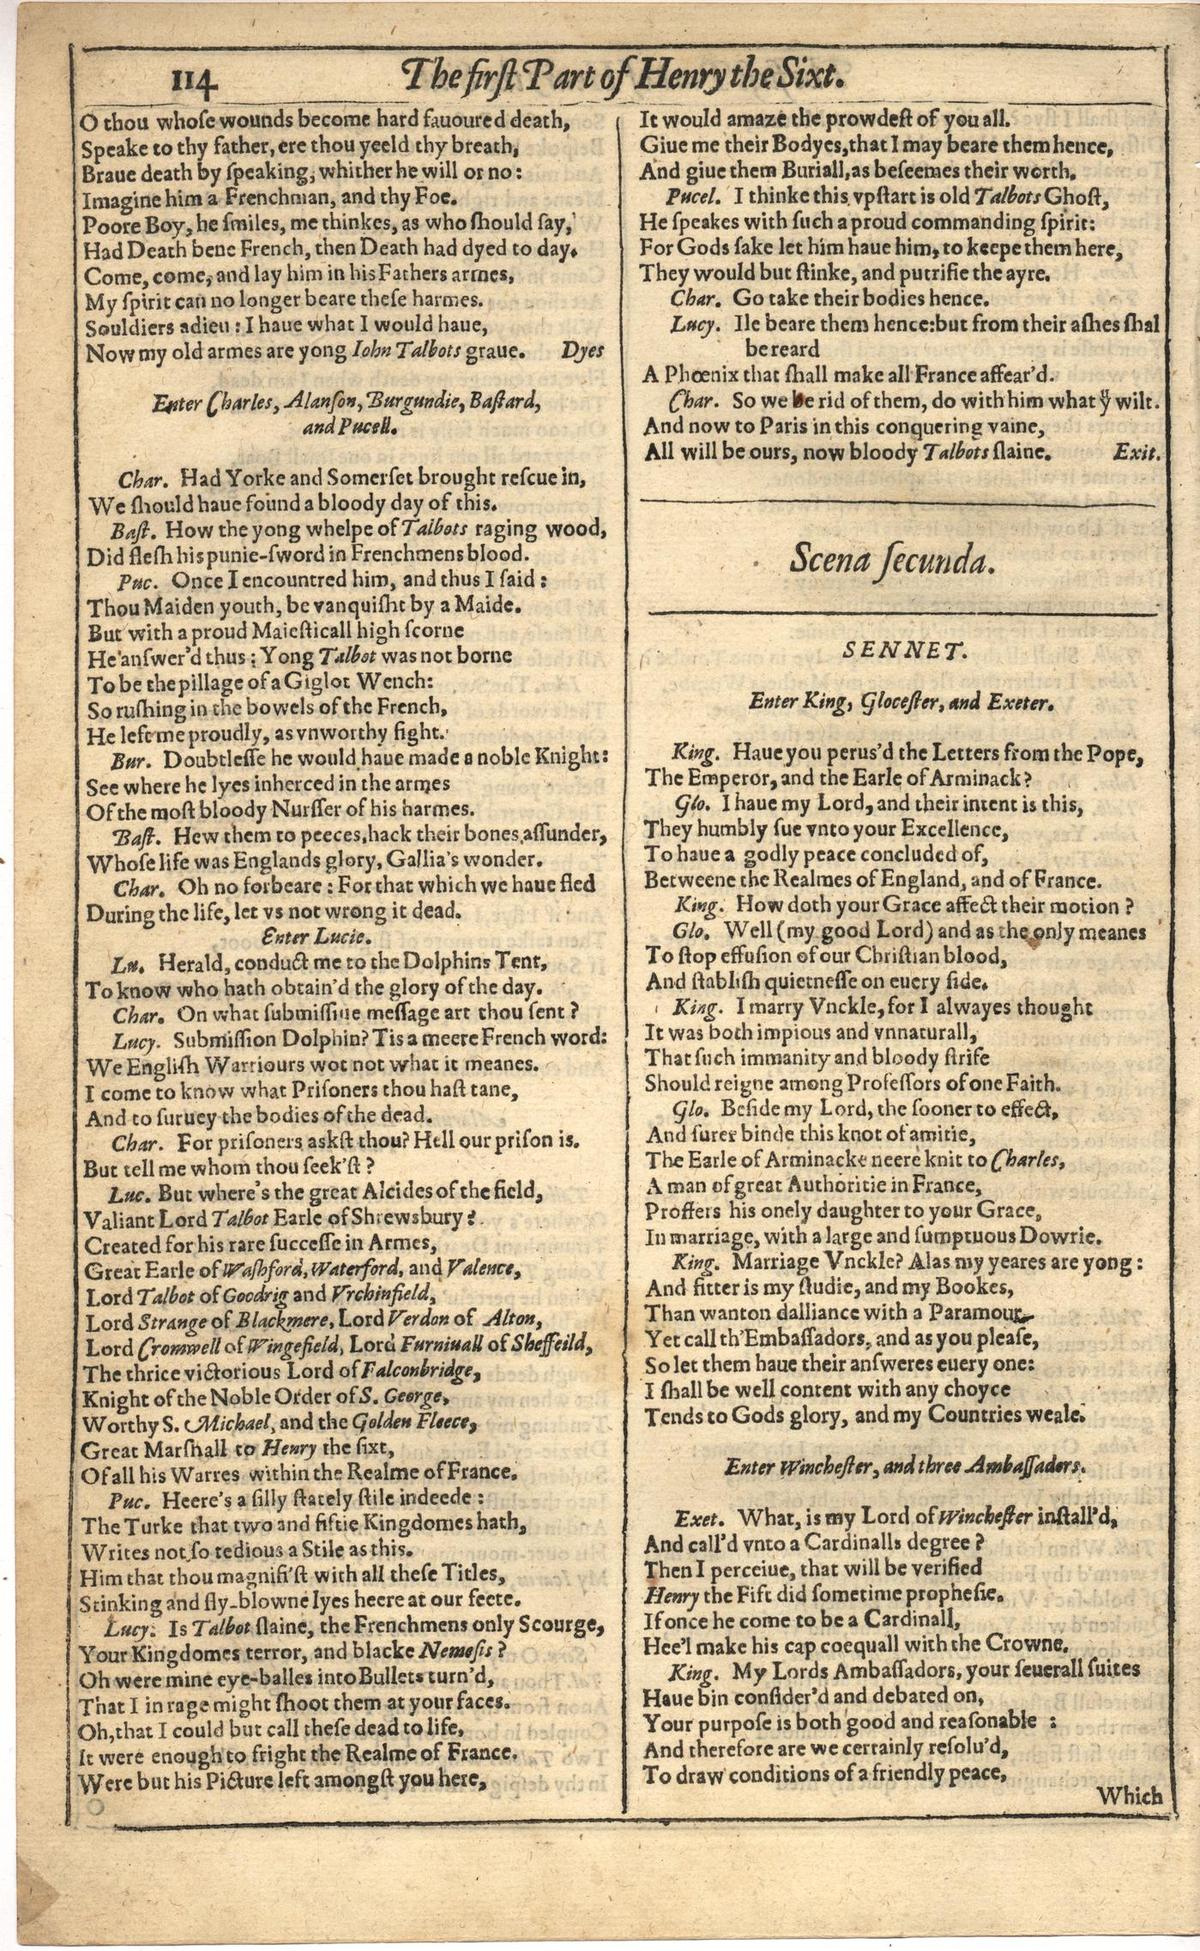 114 The firſt Part of Henry the Sixt.
O thou whoſe wounds become hard fauoured death,
Speake to thy father, ere thou yeeld thy breath,
Braue death by ſpeaking, whither he will or no:
Imagine him a Frenchman, and thy Foe.
Poore Boy, he ſmiles, me thinkes, as who ſhould ſay,
Had Death bene French, then Death had dyed to day.
Come, come, and lay him in his Fathers armes,
My ſpirit can no longer beare theſe harmes.
Souldiers adieu: I haue what I would haue,
Now my old armes are yong Iohn Talbots graue. Dyes
Enter Charles, Alanſon, Burgundie, Baſtard,
and Pucell.
Char. Had Yorke and Somerſet brought reſcue in,
We ſhould haue found a bloody day of this.
Baſt. How the yong whelpe of Talbots raging wood,
Did fleſh his punie-ſword in Frenchmens blood.
Puc. Once I encountred him, and thus I ſaid:
Thou Maiden youth, be vanquiſht by a Maide.
But with a proud Maieſticall high ſcorne
He anſwer'd thus: Yong Talbot was not borne
To be the pillage of a Giglot Wench:
So ruſhing in the bowels of the French,
He left me proudly, as vnworthy fight.
Bur. Doubtleſſe he would haue made a noble Knight:
See where he lyes inherced in the armes
Of the moſt bloody Nurſſer of his harmes.
Baſt. Hew them to peeces, hack their bones aſſunder,
Whoſe life was Englands glory, Gallia's wonder.
Char. Oh no forbeare: For that which we haue fled
During the life, let vs not wrong it dead.
Enter Lucie.
Lu. Herald, conduct me to the Dolphins Tent,
To know who hath obtain'd the glory of the day.
Char. On what ſubmiſſiue meſſage art thou ſent?
Lucy. Submiſſion Dolphin? Tis a meere French word:
We Engliſh Warriours wot not what it meanes.
I come to know what Priſoners thou haſt tane,
And to ſuruey the bodies of the dead.
Char. For priſoners askſt thou? Hell our priſon is.
But tell me whom thou ſeek'ſt?
Luc. But where's the great Alcides of the field,
Valiant Lord Talbot Earle of Shrewsbury?
Created for his rare ſucceſſe in Armes,
Great Earle of Waſhford, Waterford, and Valence,
Lord Talbot of Goodrig and Vrchinfield,
Lord Strange of Blackmere, Lord Verdon of Alton,
Lord Cromwell of Wingefield, Lord Furniuall of Sheffeild,
The thrice victorious Lord of Falconbridge,
Knight of the Noble Order of S. George,
Worthy S. Michael, and the Golden Fleece,
Great Marſhall to Henry the ſixt,
Of all his Warres within the Realme of France.
Puc. Heere's a ſilly ſtately ſtile indeede:
The Turke that two and fiftie Kingdomes hath,
Writes not ſo tedious a Stile as this.
Him that thou magnifi'ſt with all theſe Titles,
Stinking and fly-blowne lyes heere at our feete.
Lucy. Is Talbot ſlaine, the Frenchmens only Scourge,
Your Kingdomes terror, and blacke Nemeſis?
Oh were mine eye-balles into Bullets turn'd,
That I in rage might ſhoot them at your faces.
Oh, that I could but call theſe dead to life,
It were enough to fright the Realme of France.
Were but his Picture left amongſt you here,
It would amaze the prowdeſt of you all.
Giue me their Bodyes, that I may beare them hence,
And giue them Buriall, as beſeemes their worth.
Pucel. I thinke this vpſtart is old Talbots Ghoſt,
He ſpeakes with ſuch a proud commanding ſpirit:
For Gods ſake let him haue him, to keepe them here,
They would but ſtinke, and putrifie the ayre.
Char. Go take their bodies hence.
Lucy. Ile beare them hence: but from their aſhes ſhal
be reard
A Phœnix that ſhall make all France affear'd.
Char. So we be rid of them, do with him what yͧ wilt.
And now to Paris in this conquering vaine,
All will be ours, now bloody Talbots ſlaine. Exit.
Scena ſecunda.
SENNET.
Enter King, Gloceſter, and Exeter.
King. Haue you perus'd the Letters from the Pope,
The Emperor, and the Earle of Arminack?
Glo. I haue my Lord, and their intent is this,
They humbly ſue vnto your Excellence,
To haue a godly peace concluded of,
Betweene the Realmes of England, and of France.
King. How doth your Grace affect their motion?
Glo. Well (my good Lord) and as the only meanes
To ſtop effuſion of our Chriſtian blood,
And ſtabliſh quietneſſe on euery ſide.
King. I marry Vnckle, for I alwayes thought
It was both impious and vnnaturall,
That ſuch immanity and bloody ſtrife
Should reigne among Profeſſors of one Faith.
Glo. Beſide my Lord, the ſooner to effect,
And ſurer binde this knot of amitie,
The Earle of Arminacke neere knit to Charles,
A man of great Authoritie in France,
Proffers his onely daughter to your Grace,
In marriage, with a large and ſumptuous Dowrie.
King. Marriage Vnckle? Alas my yeares are yong:
And fitter is my ſtudie, and my Bookes,
Than wanton dalliance with a Paramour.
Yet call th'Embaſſadors, and as you pleaſe,
So let them haue their anſweres euery one:
I ſhall be well content with any choyce
Tends to Gods glory, and my Countries weale.
Enter Wincheſter, and three Ambaſſadors.
Exet. What, is my Lord of Wincheſter inſtall'd,
And call'd vnto a Cardinalls degree?
Then I perceiue, that will be verified
Henry the Fift did ſometime propheſie.
If once he come to be a Cardinall,
Hee'l make his cap coequall with the Crowne.
King. My Lords Ambaſſadors, your ſeuerall ſuites
Haue bin conſider'd and debated on,
Your purpoſe is both good and reaſonable:
And therefore are we certainly reſolu'd,
To draw conditions of a friendly peace,
Which